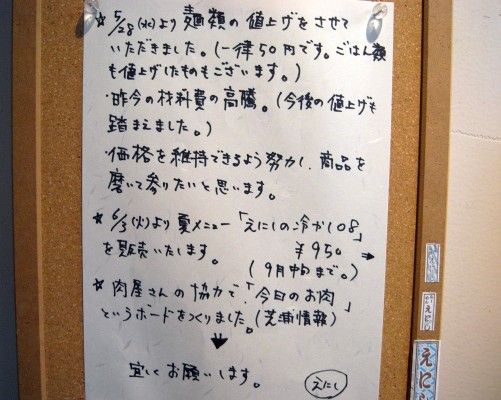 ★5/28(水)より麺類の値上げをさせて
いただきました。(一律50円です。ごはん類
も値上げしたものもございます。)
・昨今の材料費の高騰。(今後の値上げも
踏まえました。)
・価格を維持できるよう努力し、商品を
磨いて参りたいと思います。
★6/3(火)より夏メニュー「えにしの冷かし08」
を販売いたします。 ¥950 →
(9月中旬まで。)
★肉屋さんの協力で「今日のお肉」
というボードをつくりました。(芝浦情報)
↓
宜しくお願いします。
えにし
えにし
えにし